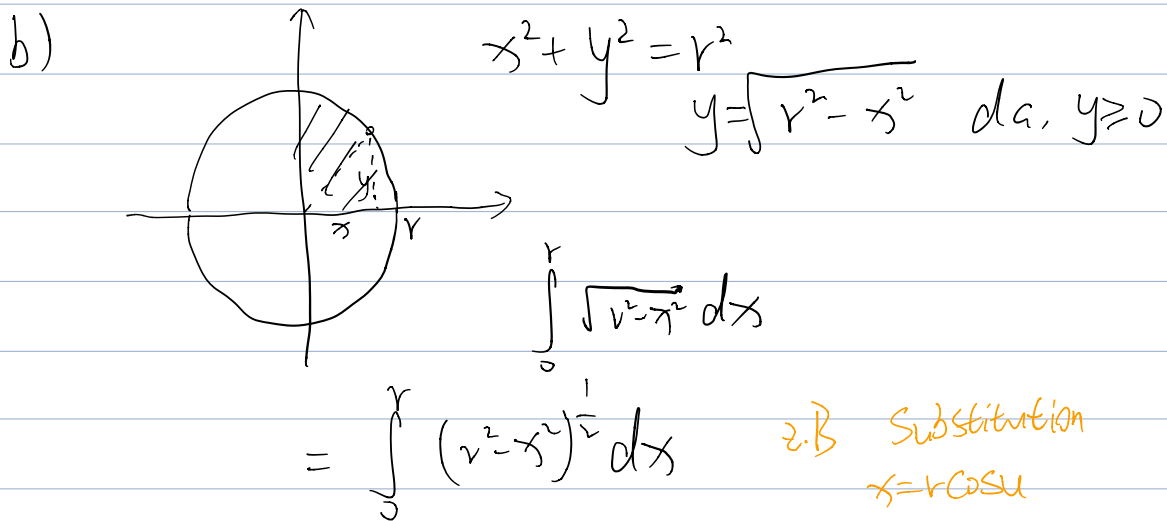 b)
x² + y² = r²
y = √(r² - x²) da, y ≥ 0
y
x r
∫₀ʳ √(r² - x²) dx
= ∫₀ʳ (r² - x²)^(1/2) dx
z.B Substitution
x = r cos u